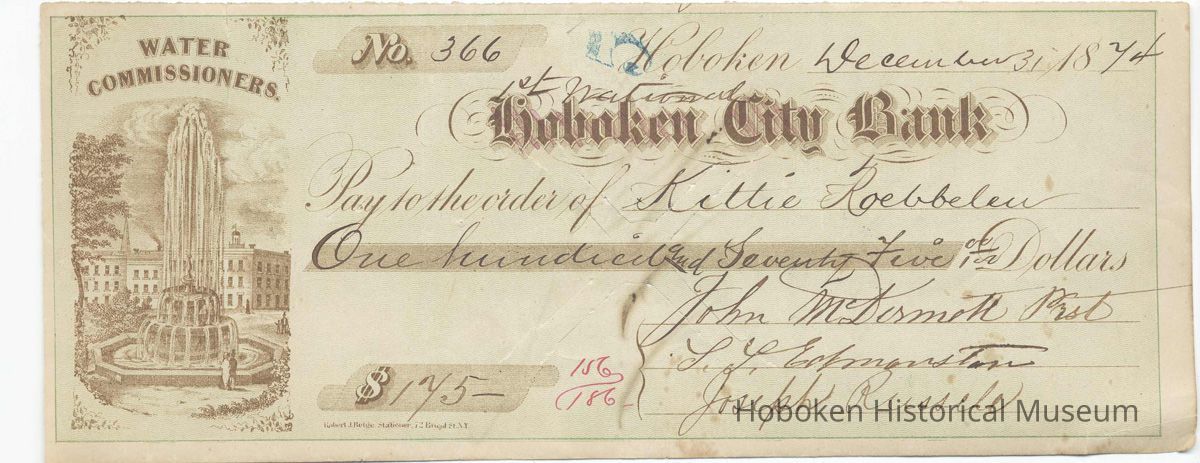 WATER
COMMISSIONERS.
No. 366
Hoboken December 31, 1874
1st National
Hoboken City Bank
Pay to the order of Kittie Roebbelen
One hundred and Seventy Five 00/100 Dollars
John McDermott Prst
$ 175-
156
186
S. S. Edmonston
Joseph Russell
Robert J. Betge. Stationer, 72 Broad St. N.Y.
Hoboken Historical Museum